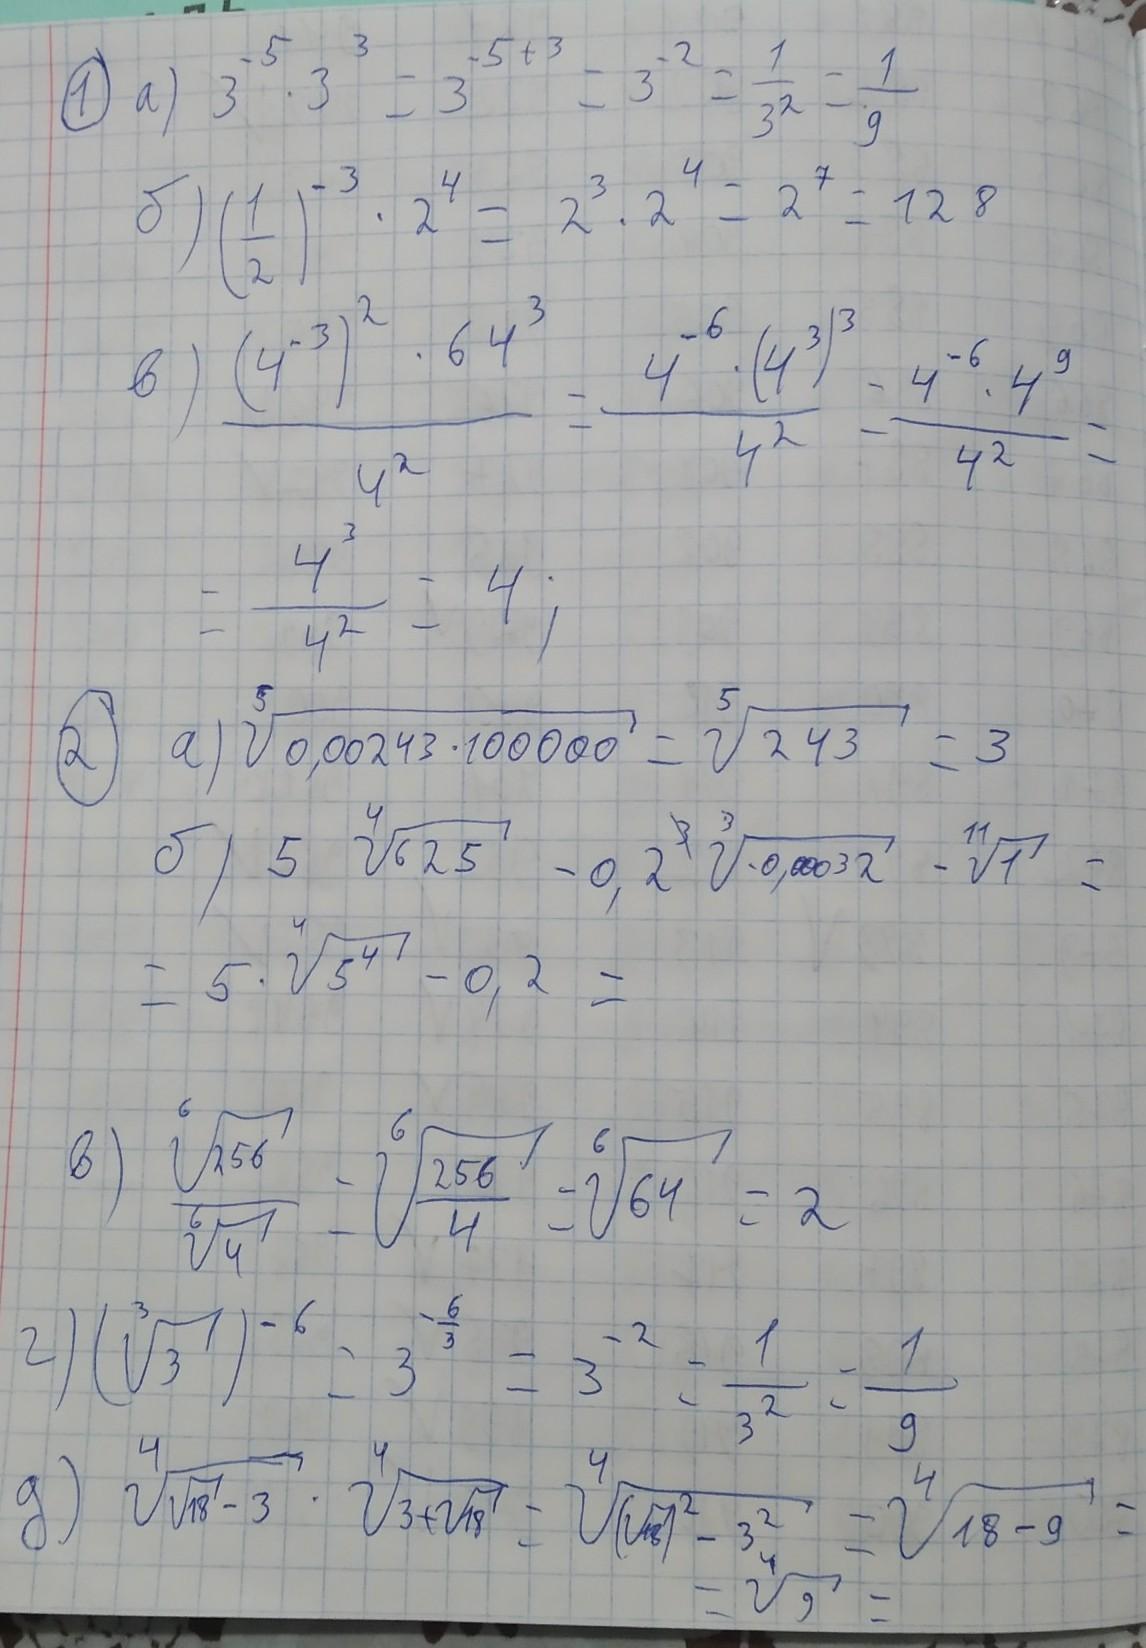 ① а) 3⁻⁵ · 3³ = 3⁻⁵⁺³ = 3⁻² = 1/3² = 1/9
б) (1/2)⁻³ · 2⁴ = 2³ · 2⁴ = 2⁷ = 128
в) (4⁻³)² · 64³ / 4² = 4⁻⁶ · (4³)³ / 4² = 4⁻⁶ · 4⁹ / 4² =
= 4³/4² = 4;
② а) ⁵√(0,00243 · 100000) = ⁵√243 = 3
б) 5 ⁴√625 - 0,2 ³√(-0,00032) - ¹¹√1 =
= 5 · ⁴√5⁴ - 0,2 =
в) ⁶√256 / ⁶√4 = ⁶√(256/4) = ⁶√64 = 2
г) (³√3)⁻⁶ = 3^(-6/3) = 3⁻² = 1/3² = 1/9
д) ⁴√(√18 - 3) · ⁴√(3+√18) = ⁴√((√18)² - 3²) = ⁴√(18-9) =
= ⁴√9 =